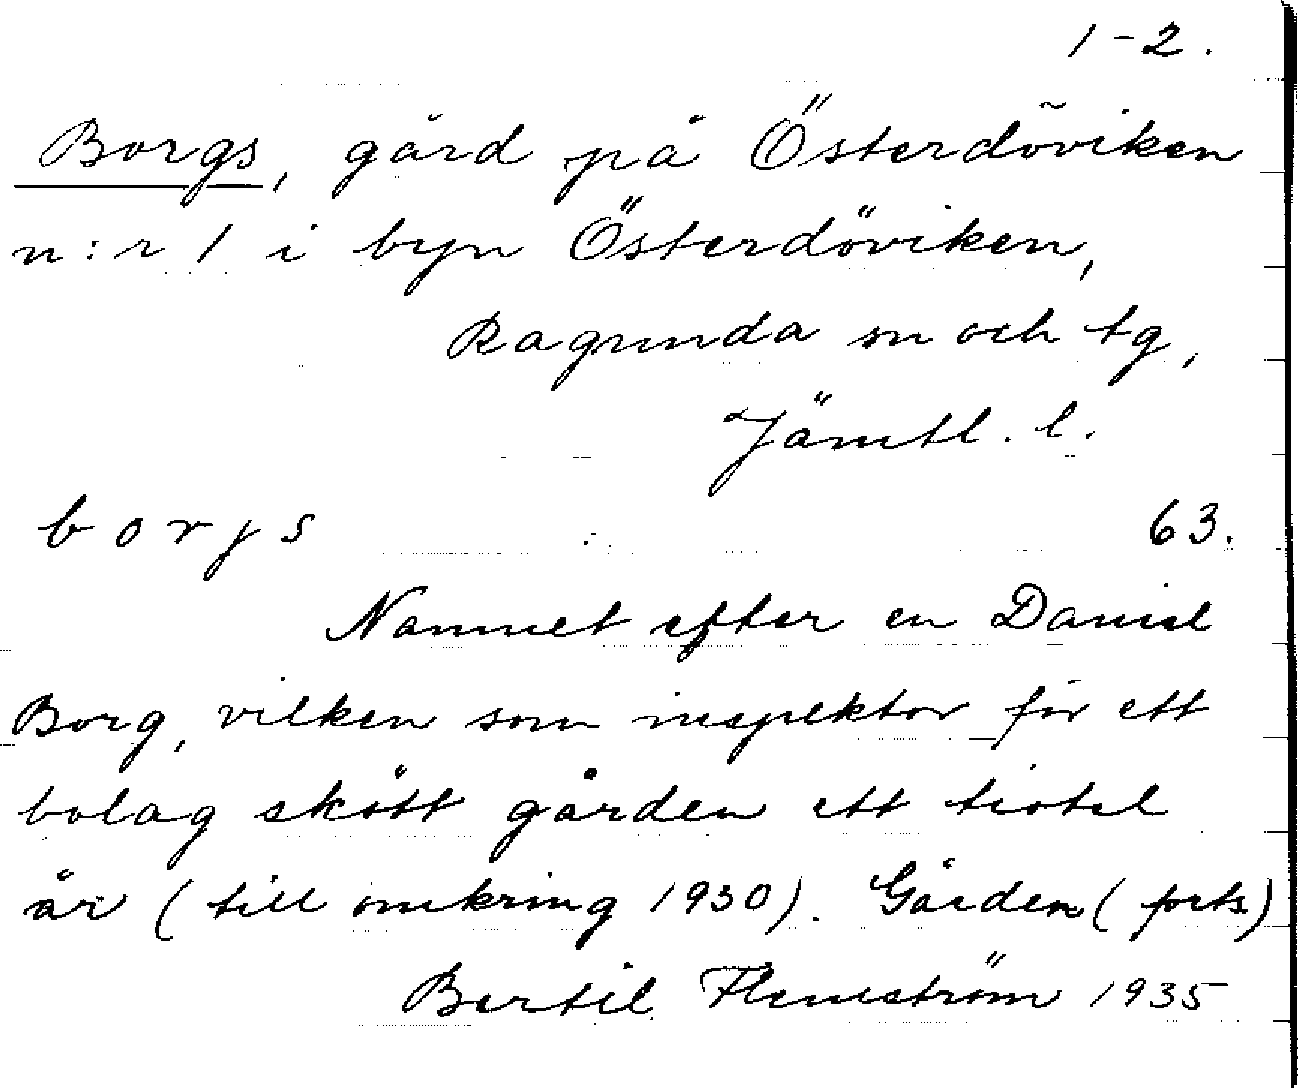 1-2.
Borgs, gård på Österdöviken
n:r 1 i byn Österdöviken,
Ragunda sn och tg,
Jämtl. l.
borjs 63.
Namnet efter en Daniel
Borg, vilken som inspektor för ett
bolag skött gården ett tiotal
år (till omkring 1930). Gården (forts)
Bertil Flemström 1935